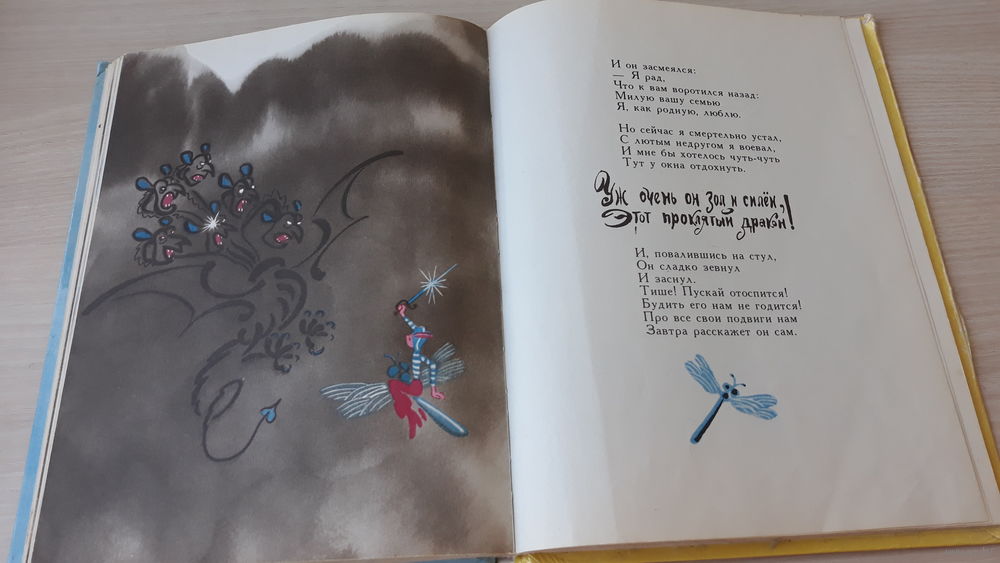 И он засмеялся:
— Я рад,
Что к вам воротился назад:
Милую вашу семью
Я, как родную, люблю.
Но сейчас я смертельно устал,
С лютым недругом я воевал,
И мне бы хотелось чуть-чуть
Тут у окна отдохнуть.
Уж очень он зол и силён,
Этот проклятый дракон!
И, повалившись на стул,
Он сладко зевнул
И заснул.
Тише! Пускай отоспится!
Будить его нам не годится!
Про все свои подвиги нам
Завтра расскажет он сам.